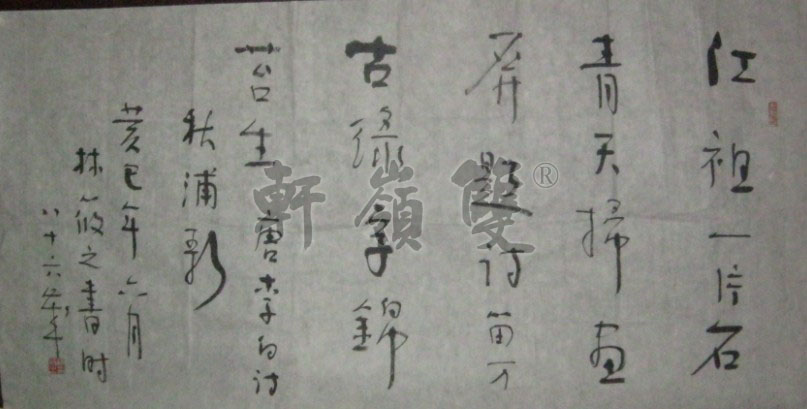 江祖一片石
青天掃画
屏題诗留万
古綠字錦
苔生 唐李白诗
秋浦歌
癸巳年六月
林筱之書时
八十六
軒嶺雙®